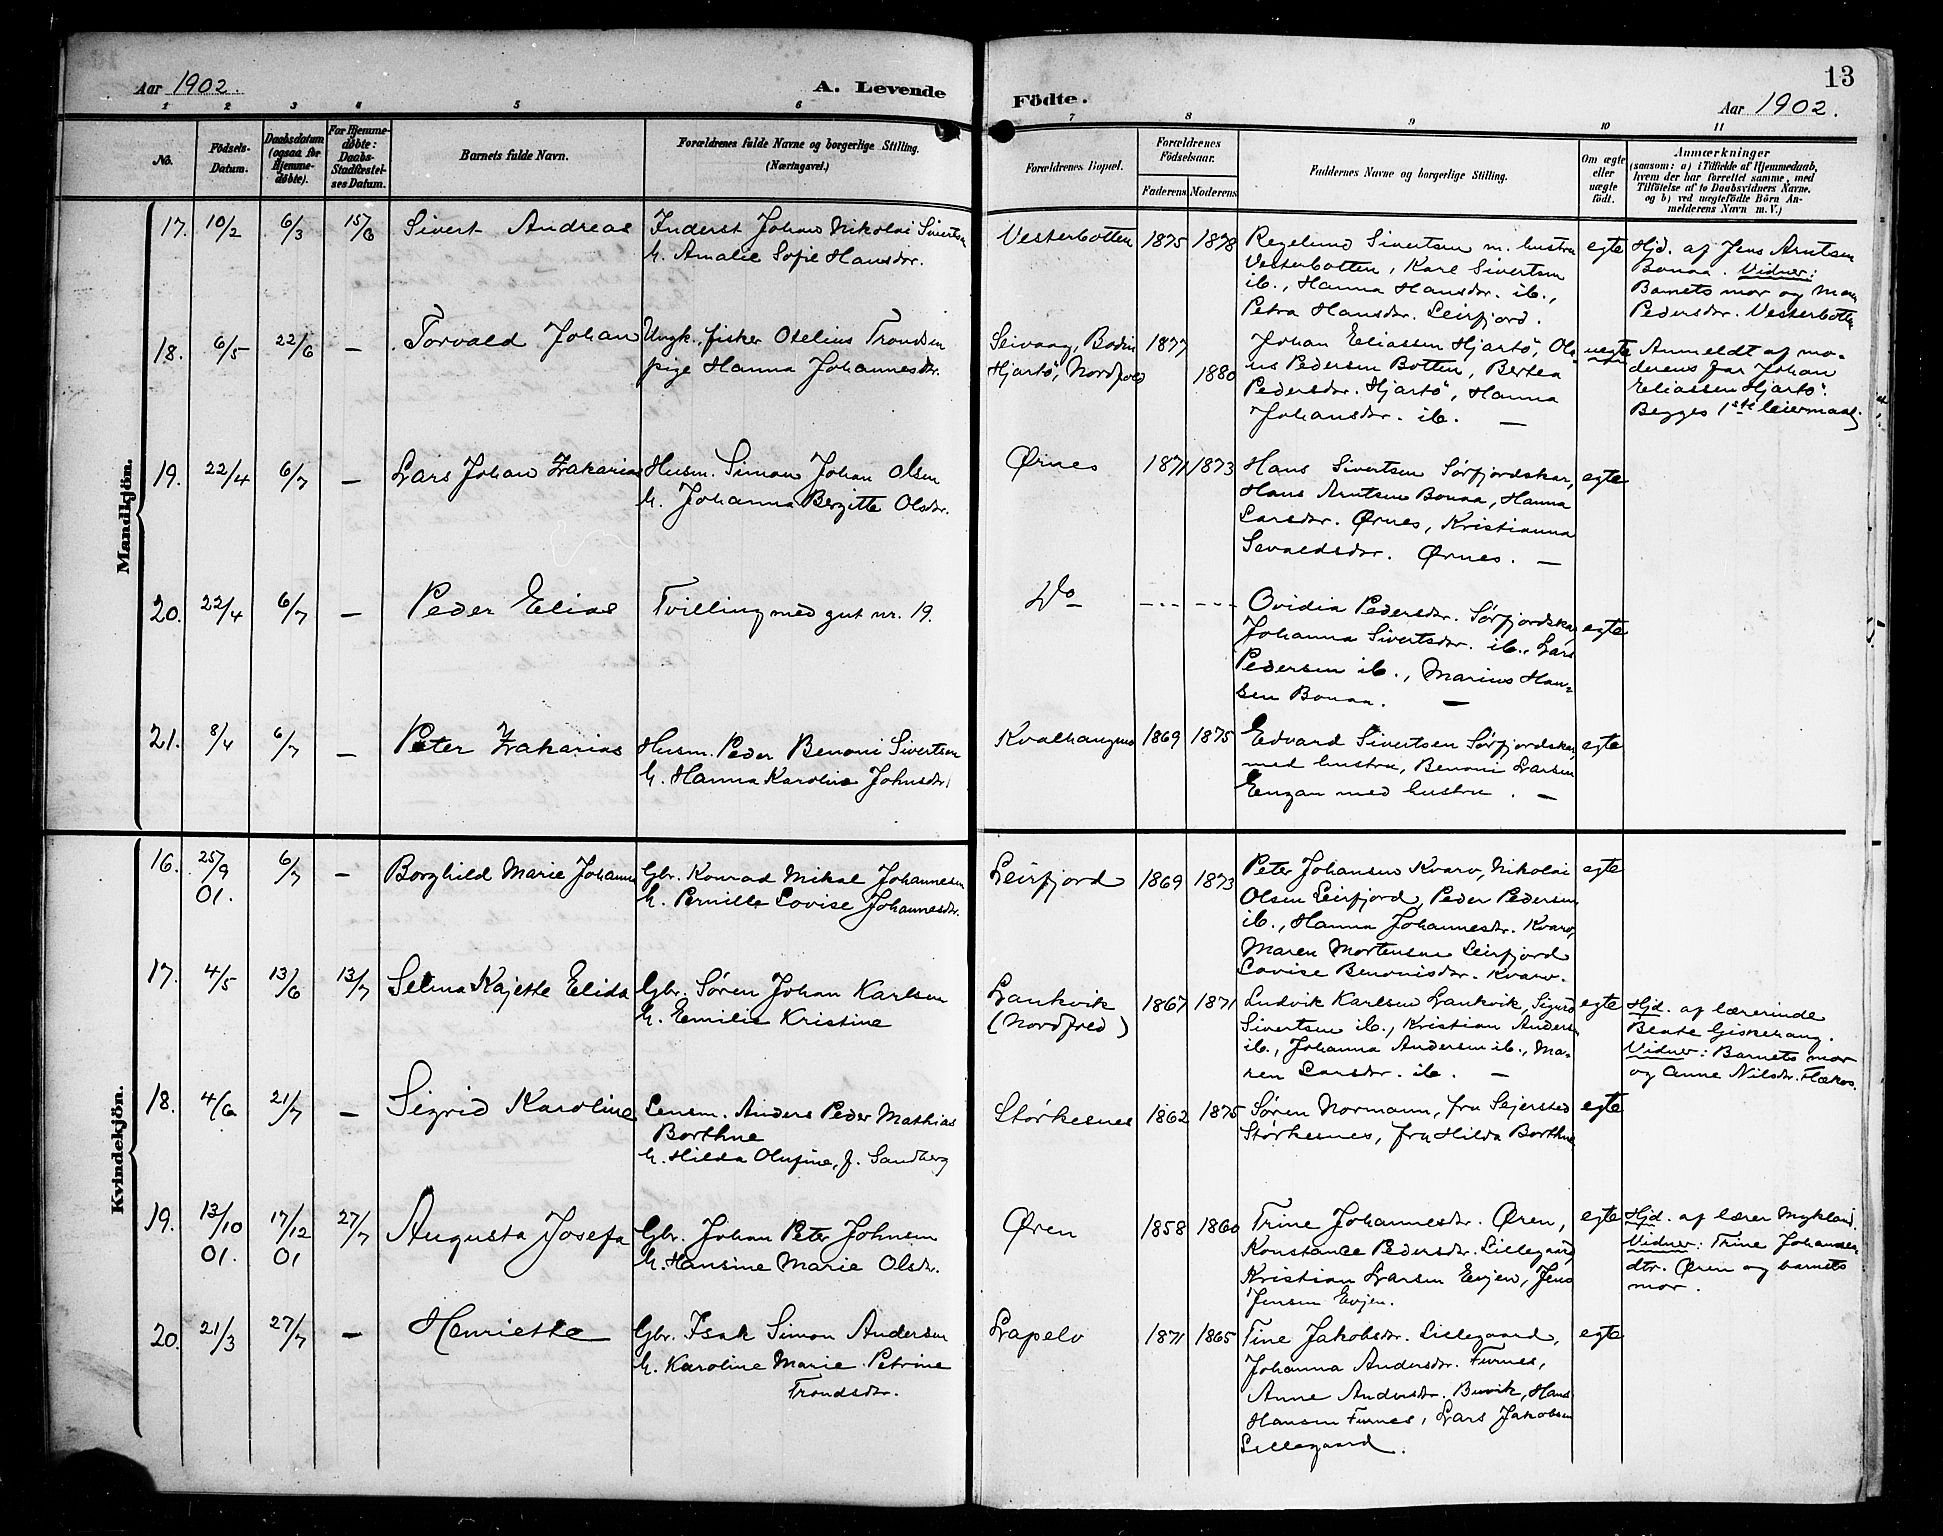 Aar 1902.
A. Levende
1 2 3 4 5 6
No.
Födsels-
Datum.
Daabsdatum
(ogsaa for
Hjemme-
døbte).
For Hjemme-
døbte:
Daabs-
Stadfæstel-
ses Datum.
Barnets fulde Navn.
Forældrenes fulde Navne og borgerlige Stilling.
(Næringsvei.)
Mandkjön.
17. 10/2 6/3 15/6 Sivert Andreas Inderst Johan Nikolai Sivertsen
h. Amalie Sofie Hansdr.
18. 6/5 22/6 — Torvald Johan Ungk. fisker Otelius Trondsen
pige Hanna Johannesdr.
19. 22/4 6/7 — Lars Johan Zakarias Husm. Simon Johan Olsen
h. Johanna Bergitte Olsdr.
20. 22/4 6/7 — Peder Elias Tvilling med gut nr. 19.
21. 8/4 6/7 — Peter Zakarias Husm. Peder Benoni Sivertsen
h. Hanna Karoline Johnsdr.
Kvindekjön.
16. 25/9 6/7 — Borghild Marie Johanna Gbr. Konrad Mikal Johannesen
01. h. Pernille Lovise Johannesdr.
17. 4/5 13/6 13/7 Selma Kajette Elida Gbr. Søren Johan Karlsen
h. Emilie Kristine
18. 4/6 21/7 — Sigrid Karoline Lensm. Anders Peder Mathias
Borthne
h. Hilda Olufine, f. Sandberg
19. 13/10 17/12 27/7 Augusta Josefa Gbr. Johan Peter Johnsen
01. 01 h. Hansine Marie Olsdr.
20. 21/3 27/7 — Henriette Gbr. Isak Simon Andersen
h. Karoline Marie Petrine
Trondsdr.
13
Födte.
Aar 1902.
7 8 9 10 11
Forældrenes Bopæl.
Forældrenes
Födselsaar.
Faderens Moderens
Faddernes Navne og borgerlige Stilling.
Om ægte
eller
uægte
födt.
Anmærkninger
(saasom: a) i Tilfælde af Hjemmedaab,
hvem der har forrettet samme, med
Tilföielse af to Daabsvidners Navne,
og b) ved uægtefødte Börn An-
melderens Navn m. V.)
Vesterbotten 1875 1878 Regelund Sivertsen m. hustru egte Hjd. af Jens Arntsen
Vesterbotten, Karl Sivertsen Bonaa. Vidner:
ib., Hanna Hansdr. ib., Barnets mor og
Petra Hansdr. Leirfjord. Pedersdr. Vesterbotten
Seivaag, Bodin 1877 Johan Eliassen Hjartö, Ol- uegte Anmeldt af mo-
Hjartö, Nordfold 1880 us Pedersen Botten, Bertea derens far Johan
Pedersdr. Hjartö, Hanna Eliassen Hjartö.
Johansdr. ib. — Begges 1ste leiermaal.
Ørnes 1871 1873 Hans Sivertsen Sørfjordskar, egte
Hans Arntsen Bonaa, Hanna
Larsdr. Ørnes, Kristianna
Sevaldsdr. Ørnes. —
Do - - - - - - Ovidia Pedersdr. Sørfjordskar, egte
Johanna Sivertsdr. ib., Lars
Pedersen ib., Marius Han-
sen Bonaa. —
1869 1875 Edvard Sivertsen Sørfjordskar, egte
med hustru, Benoni Larsen
Engan med hustru. —
Leirfjord 1869 1873 Peter Johansen Kvarv, Nikolai egte
Olsen Leirfjord, Peder Pedersen
ib., Hanna Johannesdr. Kvarv,
Maren Mortensen Leirfjord
Lovise Benonisdr. Kvarv.
Lankvik 1867 1871 Ludvik Karlsen Lankvik, Sigurd egte Hjd. af lærerinde
(Nordfold) Sivertsen ib., Kristian Andersen Beate Giskehaug.
ib., Johanna Andersen ib., Ma- Vidner: Barnets mor
ren Larsdr. ib. — og Anne Nilsdr.
Størkesnes 1862 1875 Søren Normann, fru Sejersted egte
Størkesnes, fru Hilda Borthne
Øren 1858 1860 Trine Johannesdr. Øren, egte Hjd. af lærer Mykland.
Konstance Pedersdr. Lillegaard, Vidner: Trine Johannes-
Kristian Larsen Evjen, Jens dtr. Øren og barnets
Jensen Evjen. mor.
Lapelv 1871 1865 Tine Jakobsdr. Lillegaard, egte
Johanna Andersdr. Furnes,
Anne Andersdr. Buvik, Hans
Hansen Furnes, Lars Jakobsen
Lillegaard.